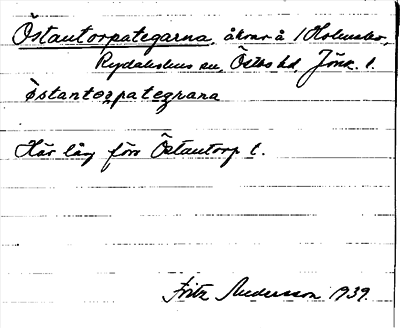 Östantorpategarna, åkrar å 1 Holmsbo,
Rydaholms sn, Östbo hd, Jönk. l.
östantorpategrana
Här låg förr Östantorp t.
Fritz Andersson 1939.